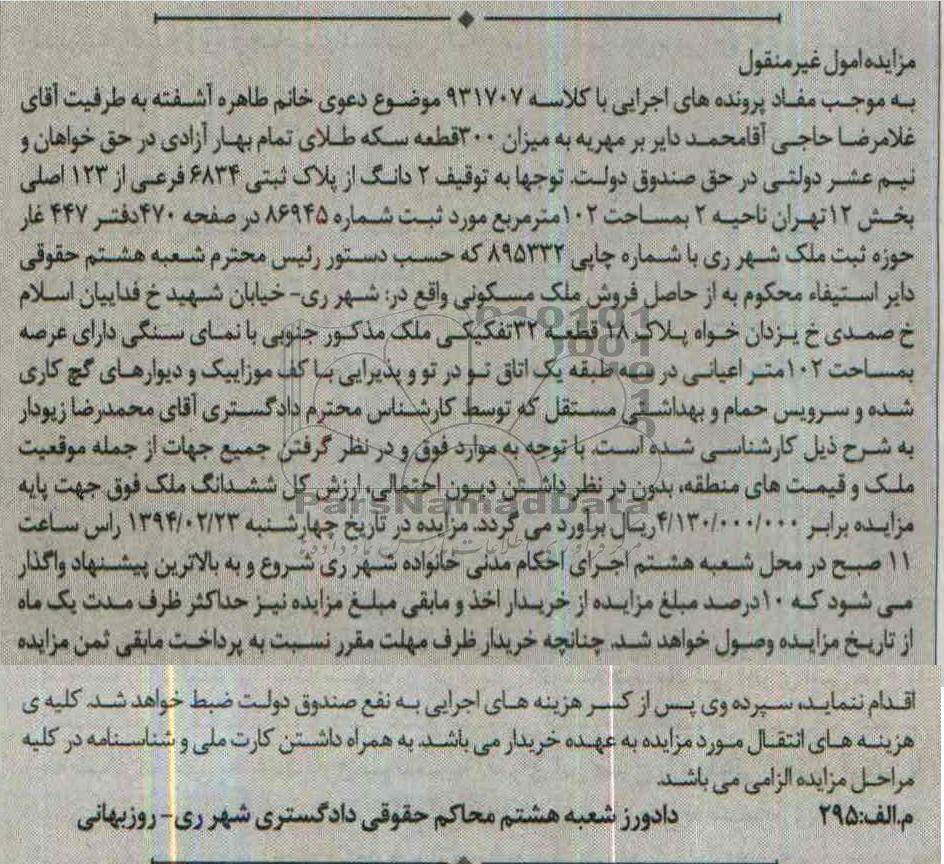 مزایده اموال غیرمنقول
به موجب مفاد پرونده های اجرایی با کلاسه ۹۳۱۷۰۷ موضوع دعوی خانم طاهره آشفته به طرفیت آقای
غلامرضا حاجی آقامحمد دایر بر مهریه به میزان ۳۰۰قطعه سکه طلای تمام بهار آزادی در حق خواهان و
نیم عشر دولتی در حق صندوق دولت. توجها به توقیف ۲ دانگ از پلاک ثبتی ۶۸۳۴ فرعی از ۱۲۳ اصلی
بخش ۱۲تهران ناحیه ۲ بمساحت ۱۰۲مترمربع مورد ثبت شماره ۸۶۹۴۵ در صفحه ۴۷۰دفتر ۴۴۷ غار
حوزه ثبت ملک شهر ری با شماره چاپی ۸۹۵۳۳۲ که حسب دستور رئیس محترم شعبه هشتم حقوقی
دایر استیفاء محکوم به از حاصل فروش ملک مسکونی واقع در: شهر ری- خیابان شهید خ فداییان اسلام
خ صمدی خ یزدان خواه پلاک ۱۸ قطعه ۳۲تفکیکی ملک مذکور جنوبی با نمای سنگی دارای عرصه
بمساحت ۱۰۲متر اعیانی در سه طبقه یک اتاق تو در تو و پذیرایی با کف موزاییک و دیوارهای گچ کاری
شده و سرویس حمام و بهداشتی مستقل که توسط کارشناس محترم دادگستری آقای محمدرضا زیودار
به شرح ذیل کارشناسی شده است. با توجه به موارد فوق و در نظر گرفتن جمیع جهات از جمله موقعیت
ملک و قیمت های منطقه، بدون در نظر داشتن دیون احتمالی، ارزش کل ششدانگ ملک فوق جهت پایه
مزایده برابر ۴/۱۳۰/۰۰۰/۰۰۰ریال برآورد می گردد. مزایده در تاریخ چهارشنبه ۱۳۹۴/۰۲/۲۳ راس ساعت
۱۱ صبح در محل شعبه هشتم اجرای احکام مدنی خانواده شهر ری شروع و به بالاترین پیشنهاد واگذار
می شود که ۱۰درصد مبلغ مزایده از خریدار اخذ و مابقی مبلغ مزایده نیز حداکثر ظرف مدت یک ماه
از تاریخ مزایده وصول خواهد شد. چنانچه خریدار ظرف مهلت مقرر نسبت به پرداخت مابقی ثمن مزایده
اقدام ننماید، سپرده وی پس از کسر هزینه های اجرایی به نفع صندوق دولت ضبط خواهد شد. کلیه ی
هزینه های انتقال مورد مزایده به عهده خریدار می باشد. به همراه داشتن کارت ملی و شناسنامه در کلیه
مراحل مزایده الزامی می باشد.
م.الف:۲۹۵ دادورز شعبه هشتم محاکم حقوقی دادگستری شهر ری- روزبهانی
ParsNamadData